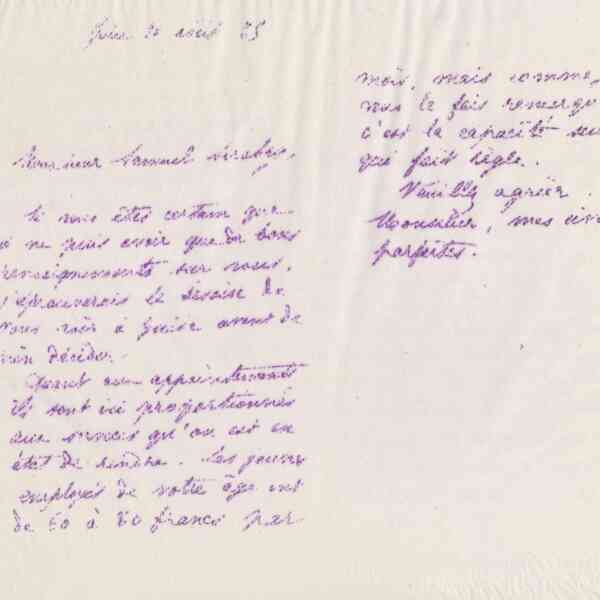 août 85
Monsieur Samuel
Si vous êtes certain que
je ne puis avoir que de bons
renseignements sur vous,
j'éprouverais le
vous voir à Guise avant de
rien décider.
Quant aux appointements
ils sont ici proportionnés
aux services qu'on est en
état de rendre. Les jeunes
employés de votre âge ont
de 50 à 60 francs par
mois, mais comme
vous le fais remarqu
c'est la capacité seu
qui fait règle.
Veuillez agréer
Monsieur, mes
parfaites.